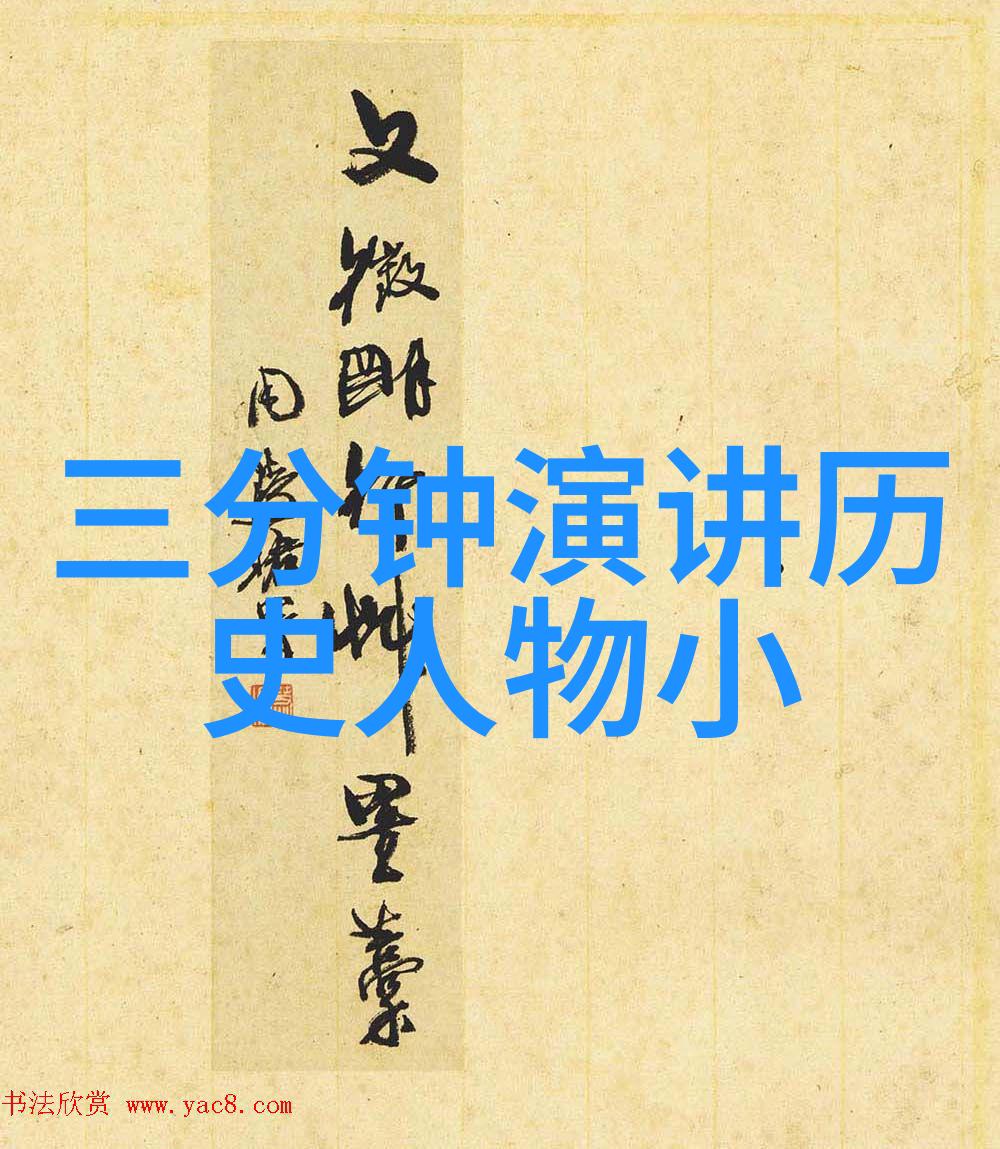 三分钟演讲历
史人物小
文徵明行草墨藁
书法欣赏 www.yac8.com